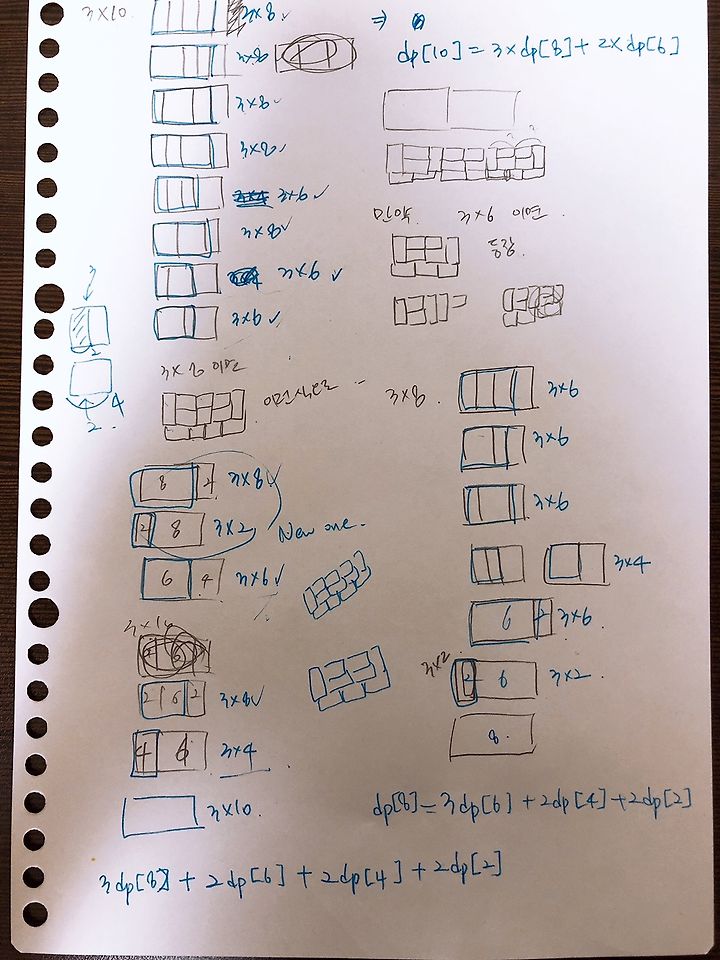 3×10.
3×8
⇒
dp[10] = 3×dp[8] + 2×dp[6]
3×8
3×8
3×8
3×6
3×8
3×6
3×6
만약 3×6 이면.
등장.
3
2
4
2.
3×8 이면
이런식으로 ...
3×8.
3×6
3×6
3×6
3×4
6 2 3×6
3×2
2 6 3×2
8.
8 2 3×8
2 8 3×2
New one.
6 4 3×6
2 6 2 3×8
4 6 3×4
3×10
dp[8] = 3dp[6] + 2dp[4] + 2dp[2]
3dp[8] + 2dp[6] + 2dp[4] + 2dp[2]